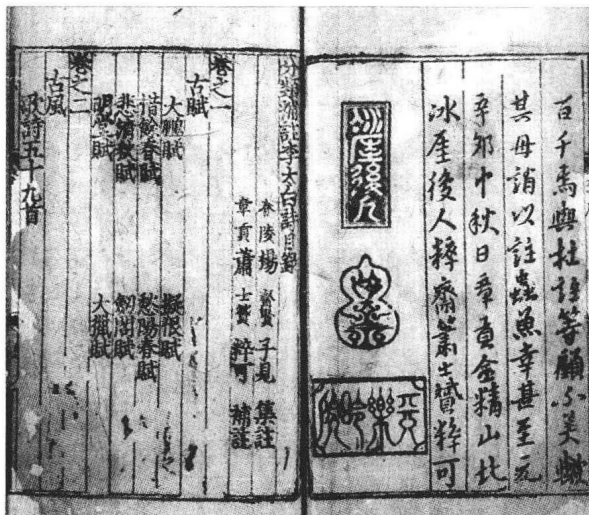 百千焉與杜註等顧不美歟
其毋誚以註蟲魚幸甚至元
辛卯中秋日章貢金精山北
冰厓後人粹齋蕭士贇粹可
冰厓後人
分類補註李太白詩目錄
舂陵楊齊賢子見集註
章貢蕭士贇粹可補註
卷之一
古賦
大鵬賦 擬恨賦
惜餘春賦 愁陽春賦
悲清秋賦 劍閣賦
明堂賦 大獵賦
卷之二
古風
歌詩五十九首